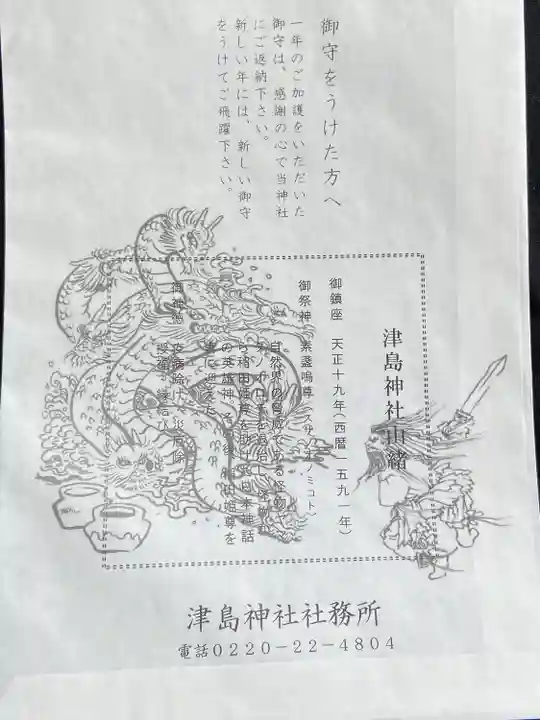 御守をうけた方へ
一年のご加護をいただいた
御守は、感謝の心で当神社
にご返納下さい。
新しい年には、新しい御守
をうけてご飛躍下さい。
津島神社由緒
御鎮座 天正十九年(西暦一五九一年)
御祭神 素盞嗚尊(スサノオノミコト)
自然界の脅威である怪物
稲田姫尊を助けた日本神話
の英雄神 その後 稲田姫尊を
御神徳 疫病除け 災厄除
縁結び
津島神社社務所
電話0220-22-4804